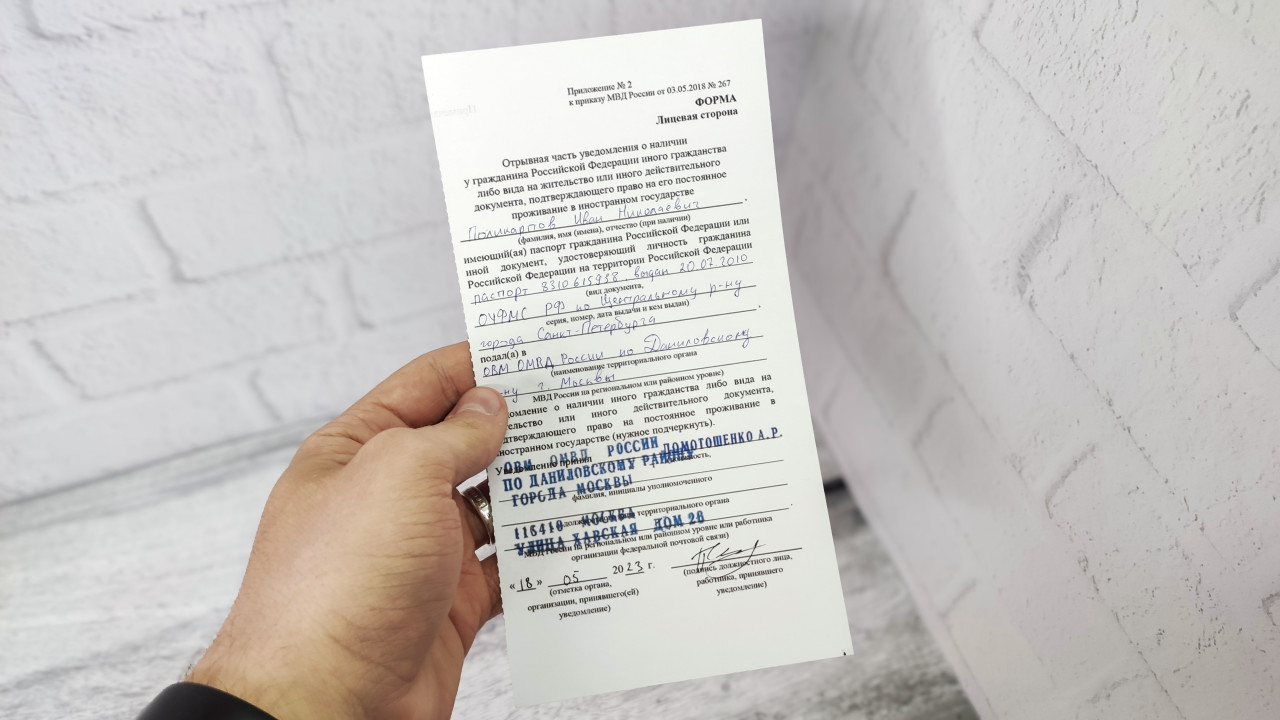 Приложение № 2
к приказу МВД России от 03.05.2018 № 267
ФОРМА
Лицевая сторона
Отрывная часть уведомления о наличии
у гражданина Российской Федерации иного гражданства
либо вида на жительство или иного действительного
документа, подтверждающего право на его постоянное
проживание в иностранном государстве
Поликарпов Иван Николаевич ,
(фамилия, имя (имена), отчество (при наличии)
имеющий(ая) паспорт гражданина Российской Федерации или
иной документ, удостоверяющий личность гражданина
Российской Федерации на территории Российской Федерации
паспорт 8310 615938 выдан 20.07.2010
(вид документа,
ОУФМС РФ по Центральному р-ну
серия, номер, дата выдачи и кем выдан)
города Санкт-Петербурга ,
подал(а) в
ОВМ ОМВД России по Даниловскому
(наименование территориального органа
ну г. Москвы
МВД России на региональном или районном уровне)
домление о наличии иного гражданства либо вида на
тельство или иного действительного документа,
дтверждающего право на постоянное проживание в
ностранном государстве (нужное подчеркнуть).
Уведомление принял
ОВМ ОМВД РОССИИ ДОМОГОШЕНКО А.Р.
ПО ДАНИЛОВСКОМУ РАЙОНУ
ГОРОДА МОСКВЫ
фамилия, инициалы уполномоченного
должностного лица территориального органа
115419 МОСКВА
УЛИЦА ХАВСКАЯ ДОМ 26
МВД России на региональном или районном уровне или работника
организации федеральной почтовой связи)
« 18 » 05 2023 г.
(отметка органа,
организации, принявшего(ей)
уведомление)
(подпись должностного лица,
работника, принявшего
уведомление)